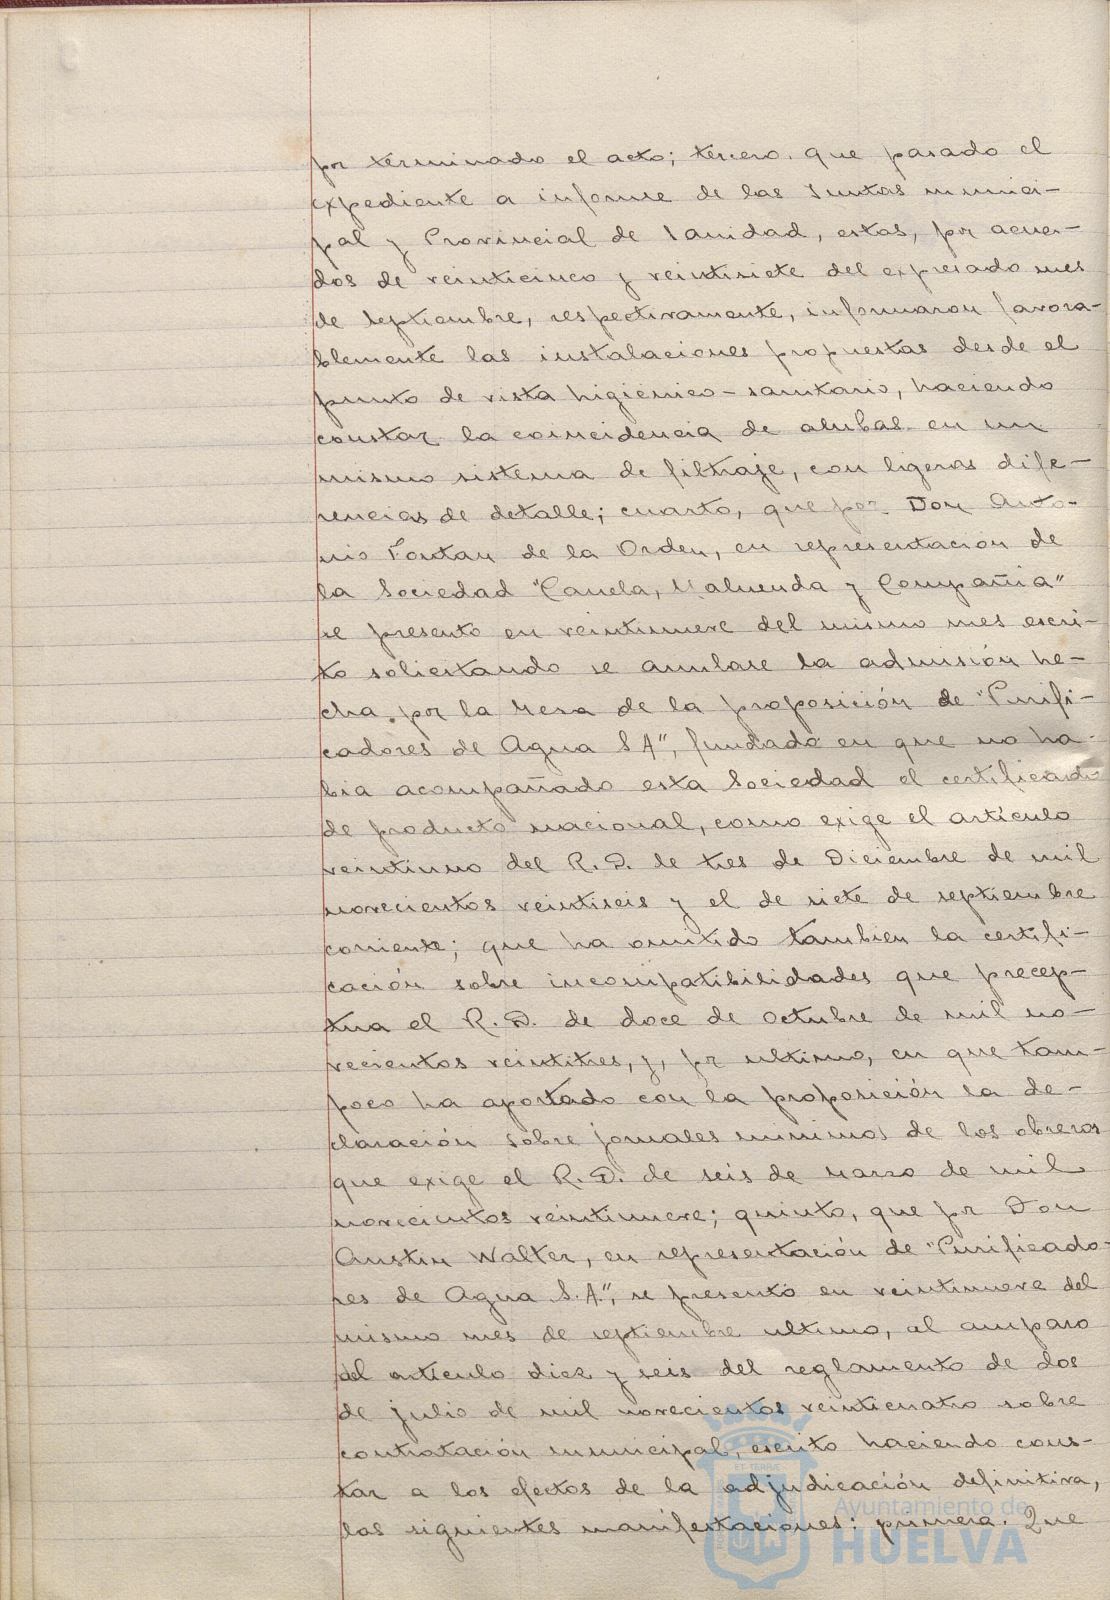 por terminado el acto; tercero. que pasado el
expediente a informe de las Juntas munici-
pal y Provincial de Sanidad, estas, por acuer-
dos de veinticinco y veintisiete del expresado mes
de septiembre, respectivamente, informaron favora-
blemente las instalaciones propuestas desde el
punto de vista higiénico-sanitario, haciendo
constar la coincidencia de ambas en un
mismo sistema de filtraje, con ligeras dife-
rencias de detalle; cuarto, que por Don Anto-
nio Fontan de la Orden, en representación de
la Sociedad "Canela, Maluenda y Compañia"
se presento en veintinueve del mismo mes escri-
to solicitando se anulase la admisión he-
cha por la Mesa de la proposición de "Purifi-
cadores de Agua S A", fundado en que no ha-
bia acompañado esta Sociedad el certificado
de producto nacional, como exige el artículo
veintiuno del R. D. de tres de Diciembre de mil
novecientos veintiseis y el de siete de septiembre
corriente; que ha omitido tambien la certifi-
cación sobre incompatibilidades que precep-
tua el R. D. de doce de Octubre de mil no-
vecientos veintitres, y, por ultimo, en que tam-
poco ha aportado con la proposición la de-
claración sobre jornales minimos de los obreros
que exige el R. D. de seis de Marzo de mil
novecientos veintinueve; quinto, que por Don
Austin Walter, en representación de "Purificado-
res de Agua S.A.", se presentó en veintinueve del
mismo mes de septiembre ultimo, al amparo
del artículo diez y seis del reglamento de dos
de julio de mil novecientos veinticuatro sobre
contratación municipal, escrito haciendo cons-
tar a los efectos de la adjudicación definitiva,
las siguientes manifestaciones: primera. Que
Ayuntamiento de
HUELVA